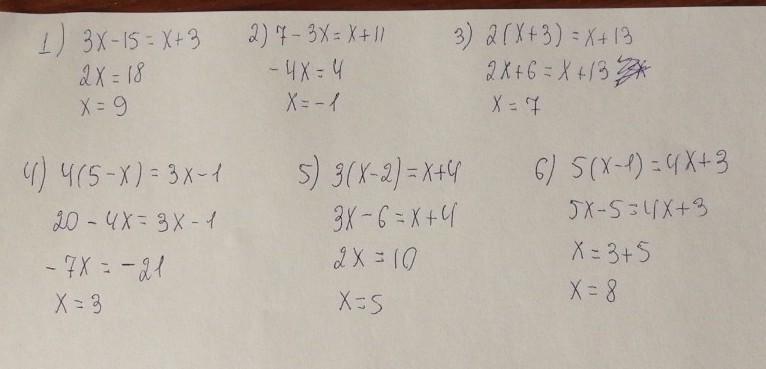 1) 3x-15=x+3
2x=18
x=9
2) 7-3x=x+11
-4x=4
x=-1
3) 2(x+3)=x+13
2x+6=x+13
x=7
4) 4(5-x)=3x-1
20-4x=3x-1
-7x=-21
x=3
5) 3(x-2)=x+4
3x-6=x+4
2x=10
x=5
6) 5(x-1)=4x+3
5x-5=4x+3
x=3+5
x=8